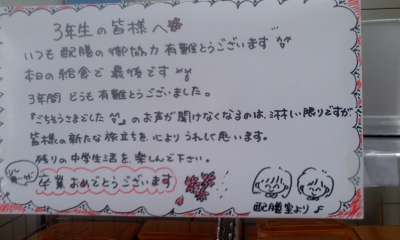 3年生の皆様へ
いつも配膳の御協力有難とうございます
本日の給食で最後です
3年間どうも有難とうございました。
『ごちそうさまでした』のお声が聞けなくなるのは、淋しい限りですが
皆様の新たな旅立ちを、心よりうれしく思います。
残りの中学生活を楽しんで下さい。
卒業おめでとうございます
配膳室より